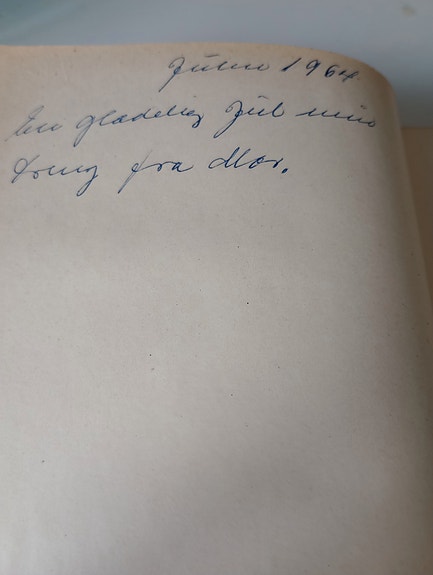 Julen 1964
En glædelig Jul min
Dreng fra Mor.